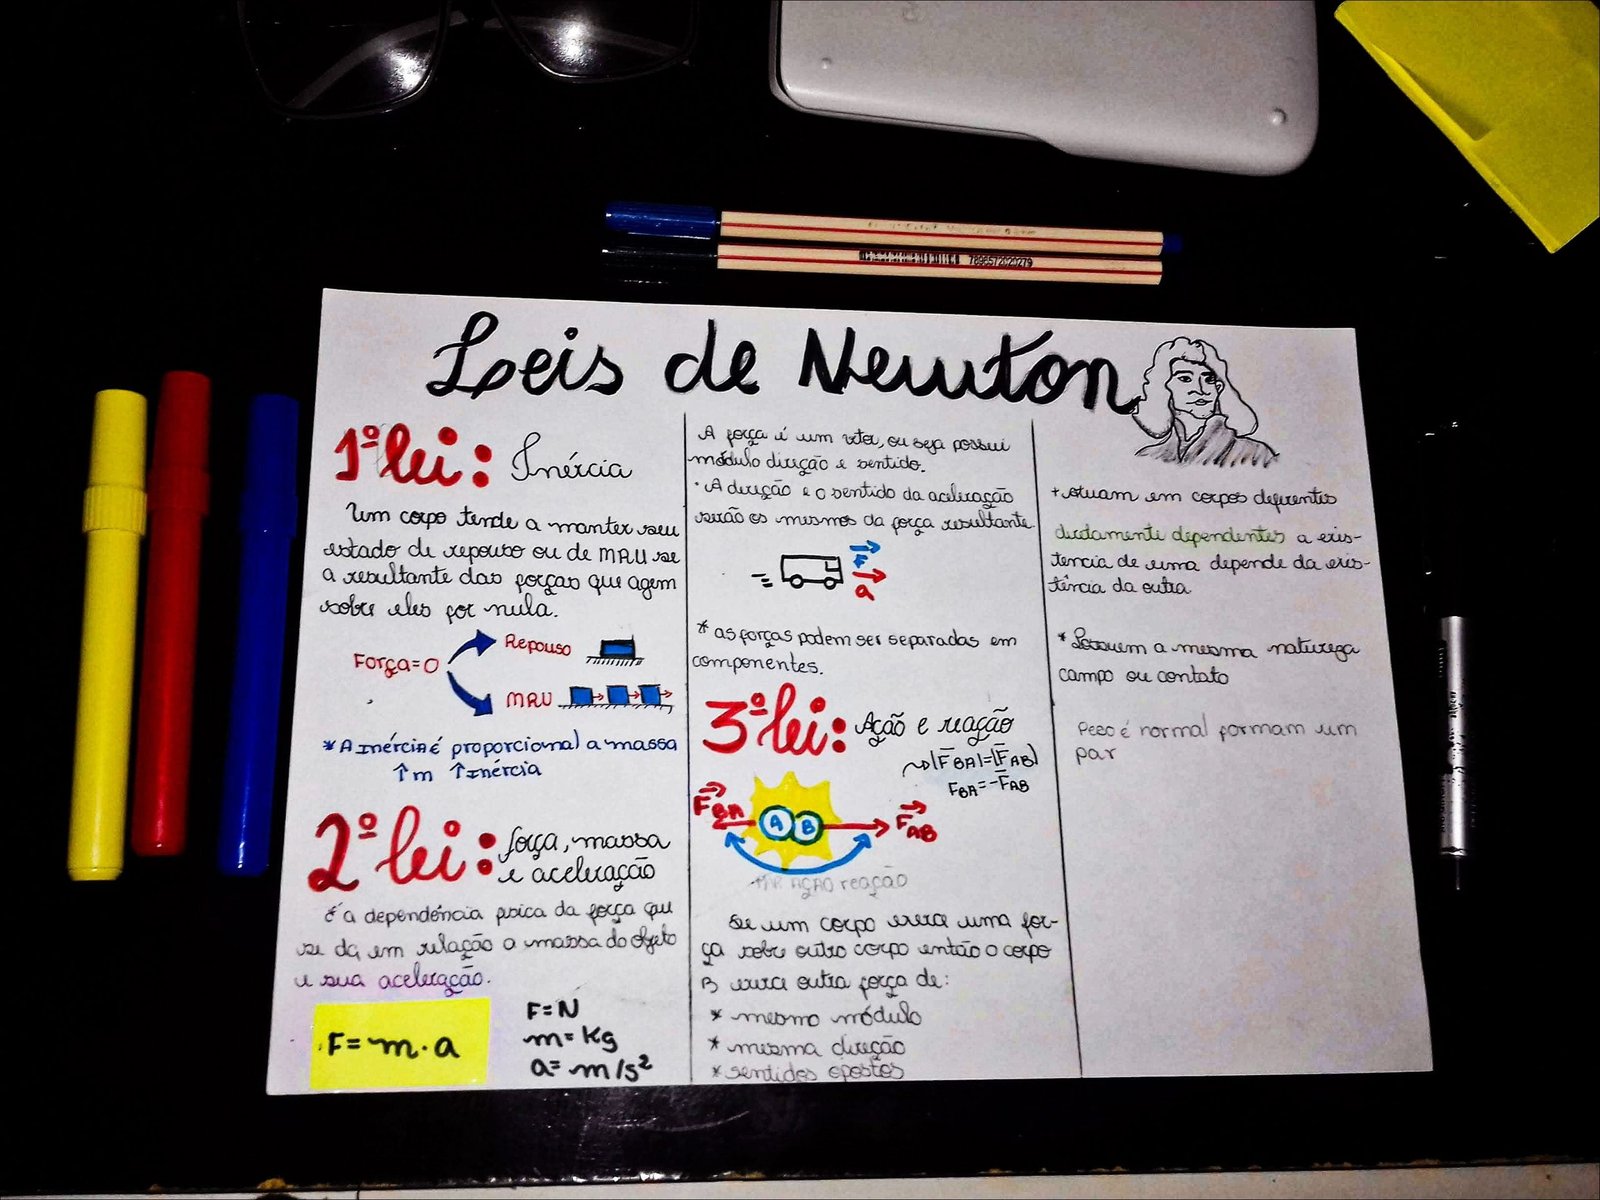 7896572020279
Leis de Newton
1ª lei: Inércia
Um corpo tende a manter seu
estado de repouso ou de MRU se
a resultante das forças que agem
sobre eles for nula.
Força=0
Repouso
MRU
*A Inércia é proporcional a massa
↑m ↑Inércia
2ª lei: força, massa
e aceleração
É a dependência física da força que
se da, em relação a massa do objeto
e sua aceleração.
F= m.a
F=N
m=kg
a= m/s²
A força é um vetor, ou seja possui
módulo direção e sentido.
• A direção e o sentido da aceleração
serão os mesmos da força resultante.
F
a
* as forças podem ser separadas em
componentes.
3ª lei: Ação e reação
→|F⃗BA|=|F⃗AB|
FBA=-FAB
F⃗BA
A B
F⃗AB
PAR AÇÃO reação
Se um corpo exerce uma for-
ça sobre outro corpo então o corpo
B exerce outra força de:
* mesmo módulo
* mesma direção
* sentidos opostos
+ Atuam em corpos diferentes
diretamente dependentes a exis-
tencia de uma depende da exis-
tência da outra
* Possuem a mesma natureza
campo ou contato
Peso é normal formam um
par